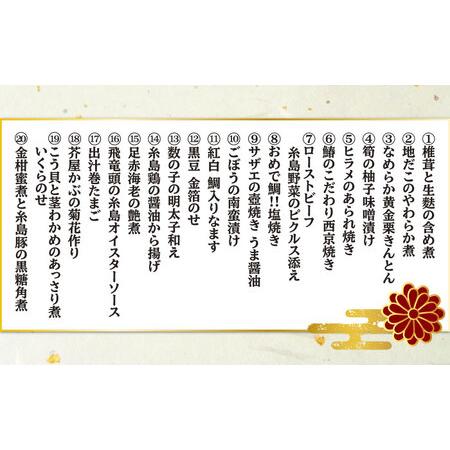 ①椎茸と生麩の含め煮
②地だこのやわらか煮
③なめらか黄金栗きんとん
④筍の柚子味噌漬け
⑤ヒラメのあられ焼き
⑥鰆のこだわり西京焼き
⑦ローストビーフ
糸島野菜のピクルス添え
⑧おめで鯛!!塩焼き
⑨サザエの壺焼き うま醤油
⑩ごぼうの南蛮漬け
⑪紅白 鯛入りなます
⑫黒豆 金箔のせ
⑬数の子の明太子和え
⑭糸島鶏の醤油から揚げ
⑮足赤海老の艶煮
⑯飛竜頭の糸島オイスターソース
⑰出汁巻たまご
⑱芥屋かぶの菊花作り
⑲こう貝と茎わかめのあっさり煮
いくらのせ
⑳金柑蜜煮と糸島豚の黒糖角煮